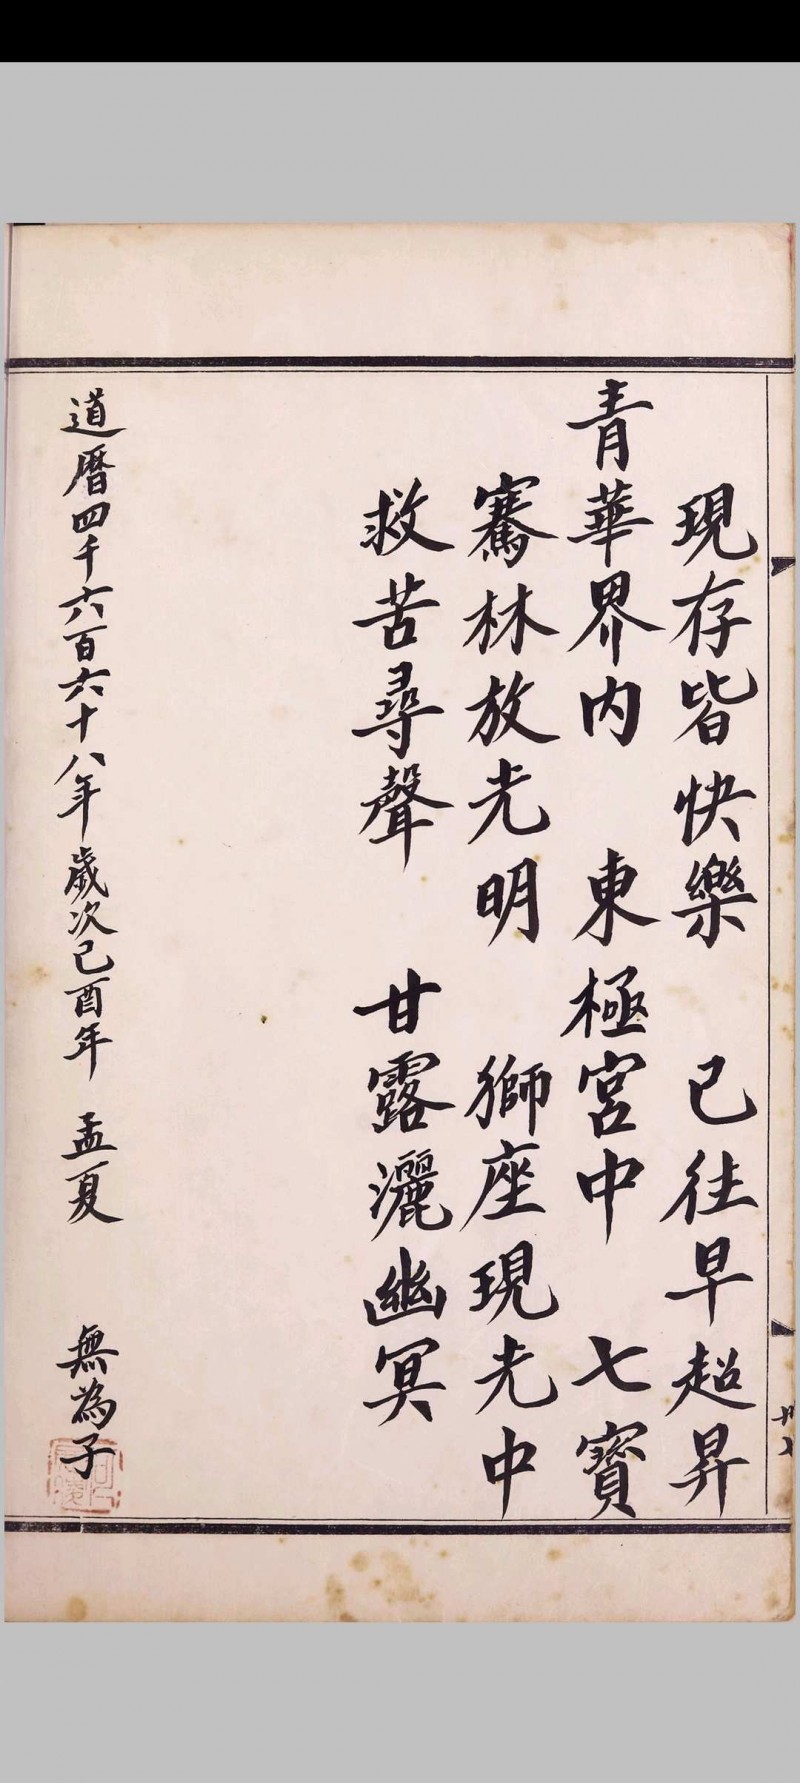 現存皆快樂　已往早超昇
青華界內　東極宮中　七寶
騫林放光明　獅座現光中
救苦尋聲　甘露灑幽冥
道曆四千六百六十八年　歲次己酉年　孟夏　無為子